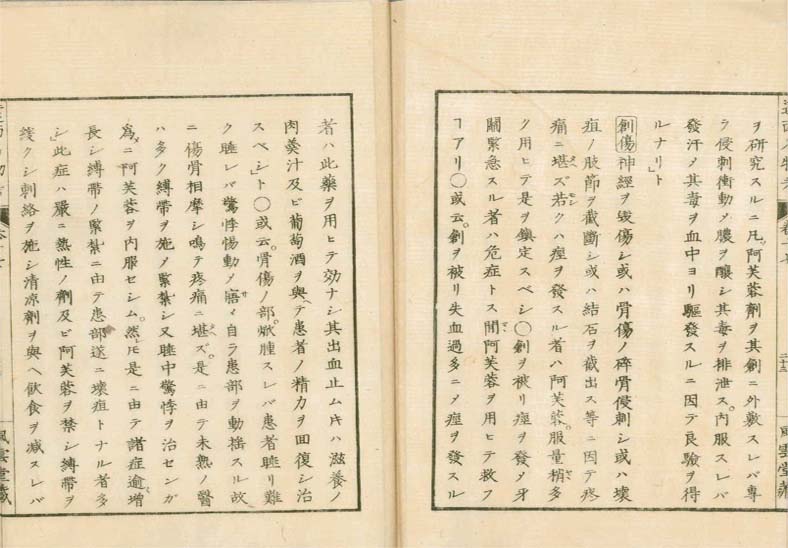 ヲ研究スルニ凡阿芙蓉劑ヲ其創ニ外敷スレバ專
ラ侵刺衝動乄膿ヲ釀シ其毒ヲ排泄ス。内服スレバ
發汗乄其毒ヲ血中ヨリ驅發スルニ因テ良驗ヲ得
ルナリト
創傷神經ヲ毀傷シ或ハ骨傷ノ碎骨侵刺シ或ハ壞
疽ノ肢節ヲ截斷シ或ハ結石ヲ截出ス等ニ因テ疼
痛ニ堪ズ若クハ痙ヲ發スル者ハ阿芙蓉。服量稍多
ク用ヒテ是ヲ鎮定スベシ〇創ヲ被リ痙ヲ發乄牙
關緊急スル者ハ危症トス間阿芙蓉ヲ用ヒテ救フ
ヿアリ〇或云。創ヲ被リ失血過多ニ乄痙ヲ發スル
者ハ此藥ヲ用ヒテ効ナシ其出血止ムトキハ滋養ノ
肉羹汁及ビ葡萄酒ヲ與ヘテ患者ノ精力ヲ回復シ治
スベシト〇或云。骨傷ノ部。焮腫スレバ患者睡リ難
ク睡レバ驚悸惕動乄寤メ自ラ患部ヲ動揺スル故
ニ傷骨相摩シ鳴テ疼痛ニ堪ズ。是ニ由テ未熟ノ醫
ハ多ク縛帶ヲ施乄緊紮シ又睡中驚悸ヲ治センガ
為メニ阿芙蓉ヲ内服セシム。然レドモ是ニ由テ諸症逾増
長シ縛帶ノ緊紮ニ由テ患部遂ニ壞疽トナル者多
シ此症ハ嚴ニ熱性ノ劑及ビ阿芙蓉ヲ禁シ縛帶ヲ
緩クシ刺絡ヲ施シ清凉劑ヲ與ヘ飲食ヲ減スレバ
風雲堂藏